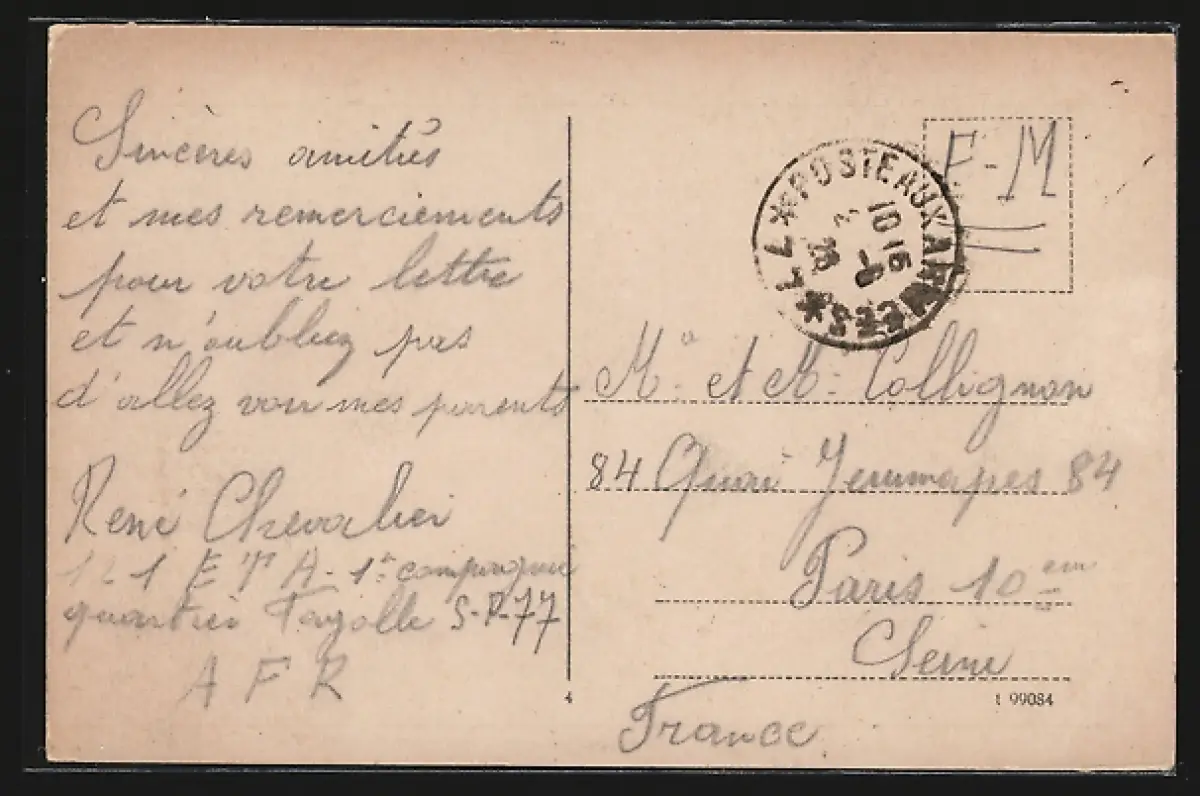 Sincères amitiés
et mes remerciements
pour votre lettre
et n'oubliez pas
d'allez voir mes parents
René Chevalier
121 E T A - 1e compagnie
quartier Fayolle S-P-77
A F R
F-M
POSTE AUX ARMEES * 77 *
10 15
Me et M. Collignon
84 Quai Jemmapes 84
Paris 10em
Seine
France
4
1 99084